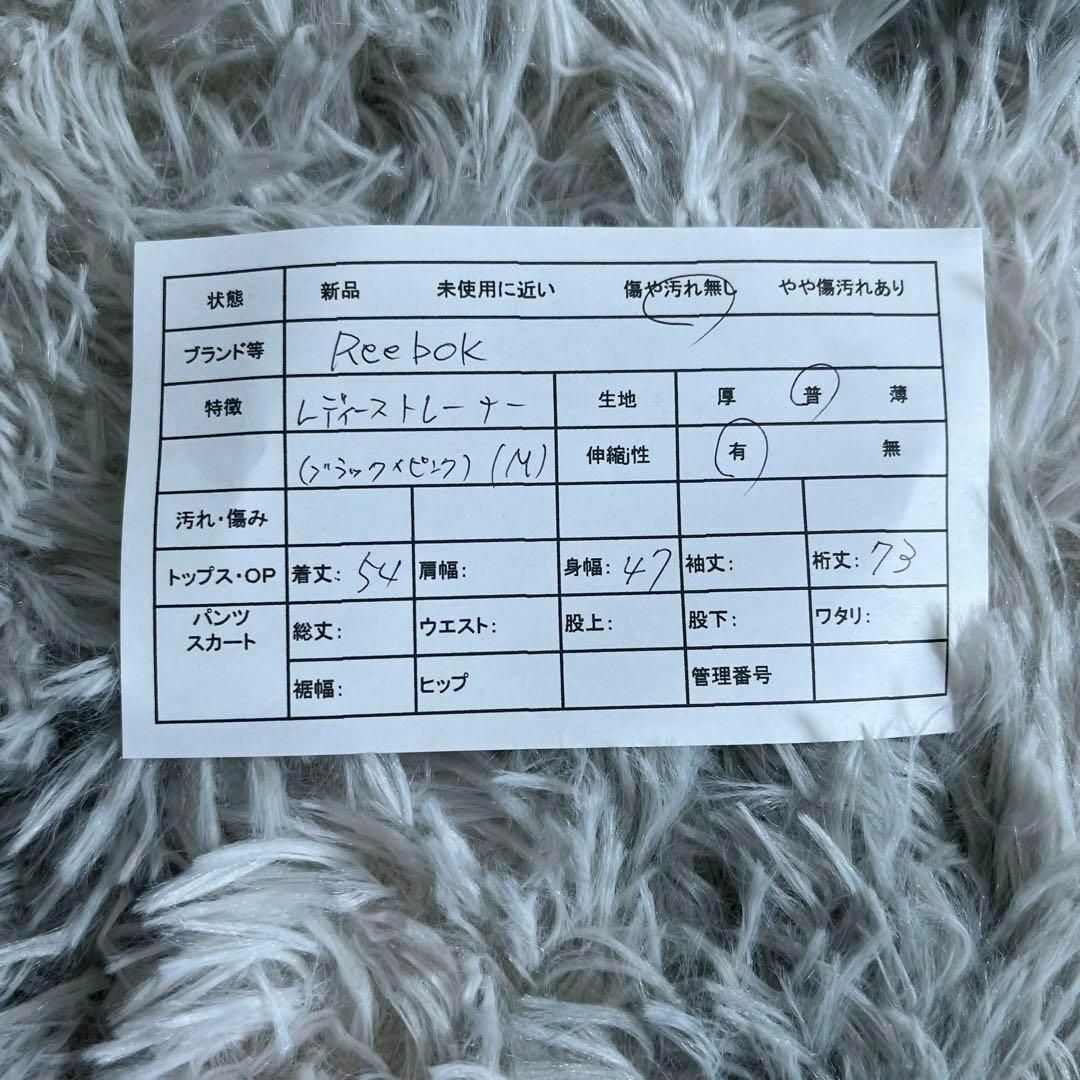 状態 新品 未使用に近い 傷や汚れ無し やや傷汚れあり
ブランド等 Reebok
特徴 レディーストレーナー 生地 厚 普 薄
(ブラック×ピンク) (M) 伸縮j性 有 無
汚れ・傷み
トップス・OP 着丈: 54 肩幅: 身幅: 47 袖丈: 裄丈: 73
パンツ
スカート 総丈: ウエスト: 股上: 股下: ワタリ:
裾幅: ヒップ 管理番号